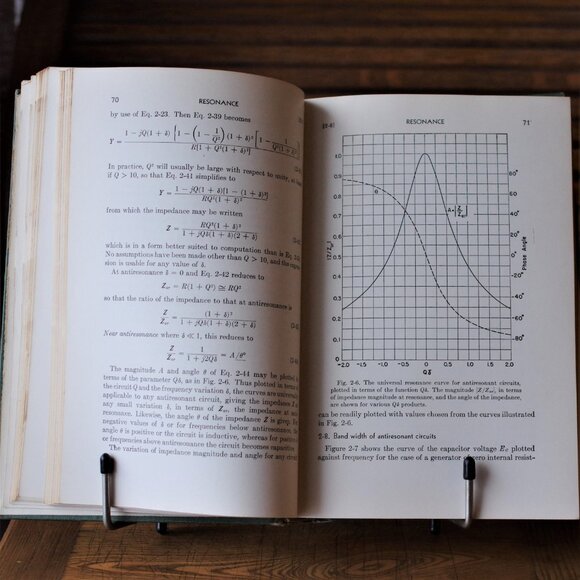 70 RESONANCE
by use of Eq. 2-23. Then Eq. 2-39 becomes
Y =
In practice, Q² will usually be large with respect to unity,
if Q > 10, so that Eq. 2-41 simplifies to
Y = 1 − jQ(1 + δ)[1 − (1 + δ)²] / RQ²(1 + δ)²
from which the impedance may be written
Z = RQ²(1 + δ)² / 1 + jQδ(1 + δ)(2 + δ)
which is in a form better suited to computation than is Eq.
No assumptions have been made other than Q > 10, and the
sion is usable for any value of δ.
At antiresonance δ = 0 and Eq. 2-42 reduces to
Zar = R(1 + Q²) ≅ RQ²
so that the ratio of the impedance to that at antiresonance is
Z / Zar = (1 + δ)² / 1 + jQδ(1 + δ)(2 + δ)
Near antiresonance where δ ≪ 1, this reduces to
Z / Zar = 1 / 1 + j2Qδ = A/θ°
The magnitude A and angle θ of Eq. 2-44 may be plotted in
terms of the parameter Qδ, as in Fig. 2-6. Thus plotted in terms of
the circuit Q and the frequency variation δ, the curves are universally
applicable to any antiresonant circuit, giving the impedance Z at
any small variation δ, in terms of Zar, the impedance at anti-
resonance. Likewise, the angle θ of the impedance Z is given. For
negative values of δ or for frequencies below antiresonance, the
angle θ is positive or the circuit is inductive, whereas for positive
or frequencies above antiresonance the circuit becomes capacitive.
The variation of impedance magnitude and angle for any circuit
RESONANCE 71
|Z/Zar|
1.0
0.9
0.8
0.7
0.6
0.5
0.4
0.3
0.2
0.1
0
θ
A=|Z/Zar|
80°
60°
40°
20°
0°
-20°
-40°
-60°
-80°
Phase Angle
-2.0 -1.5 -1.0 -0.5 0 0.5 1.0 1.5 2.0
Qδ
Fig. 2-6. The universal resonance curve for antiresonant circuits,
plotted in terms of the function Qδ. The magnitude |Z/Zar|, in terms
of impedance magnitude at resonance, and the angle of the impedance,
are shown for various Qδ products.
can be readily plotted with values chosen from the curves illustrated
in Fig. 2-6.
2-8. Band width of antiresonant circuits
Figure 2-7 shows the curve of the capacitor voltage Ec plotted
against frequency for the case of a generator of zero internal resist-